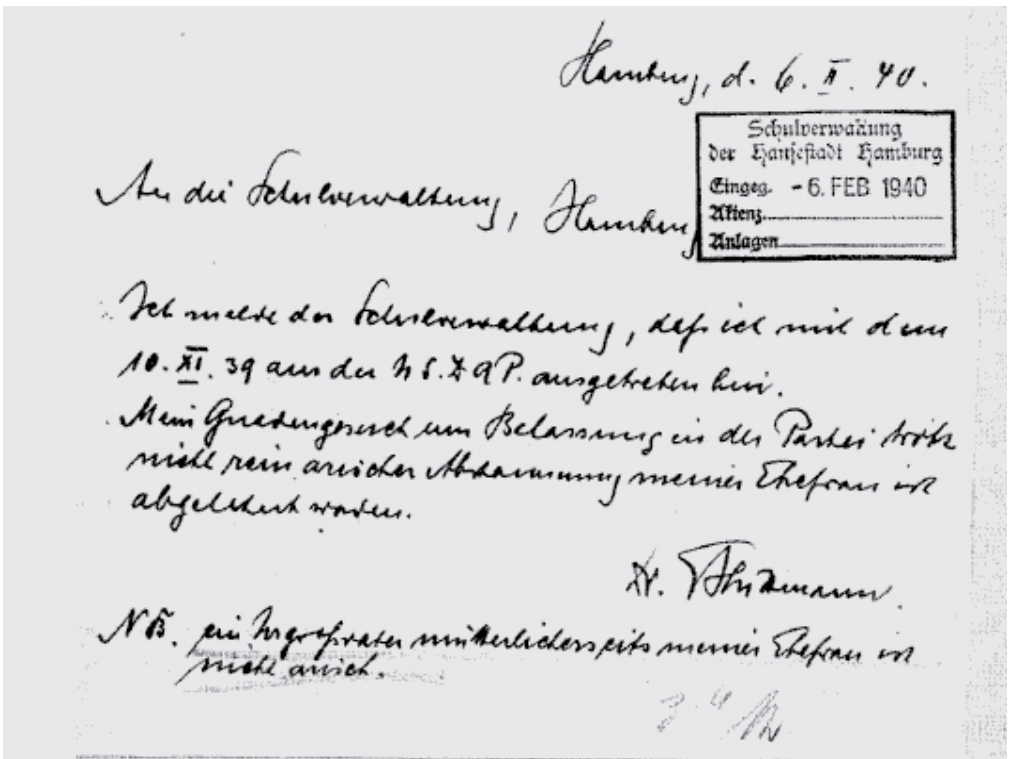 Hamburg, d. 6. II. 40.
Schulverwaltung
der Hansestadt Hamburg
Eingeg. - 6. FEB 1940
Aktenz.
Anlagen
An die Schulverwaltung, Hamburg
Ich melde der Schulverwaltung, daß ich mit dem
10. XI. 39 aus der N S. D A P. ausgetreten bin.
Mein Gnadengesuch um Belassung in der Partei trotz
nicht rein arischer Abstammung meiner Ehefrau ist
abgelehnt worden.
Dr.
N B. ein Urgroßvater mütterlicherseits meiner Ehefrau ist
nicht arisch.